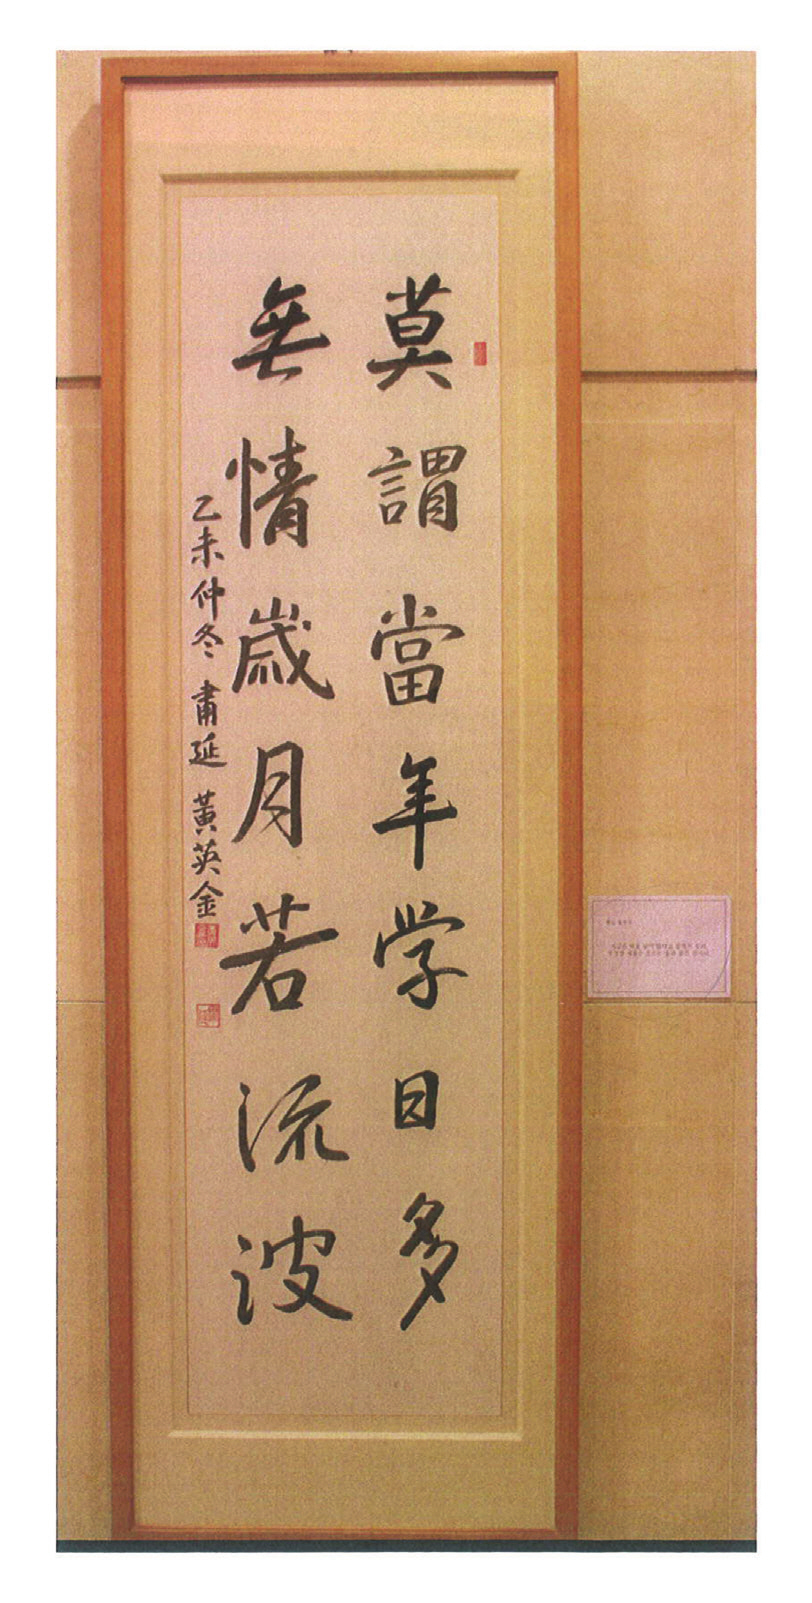 莫謂當年学日多
無情歳月若流波
乙未仲冬 甫延 黃英金